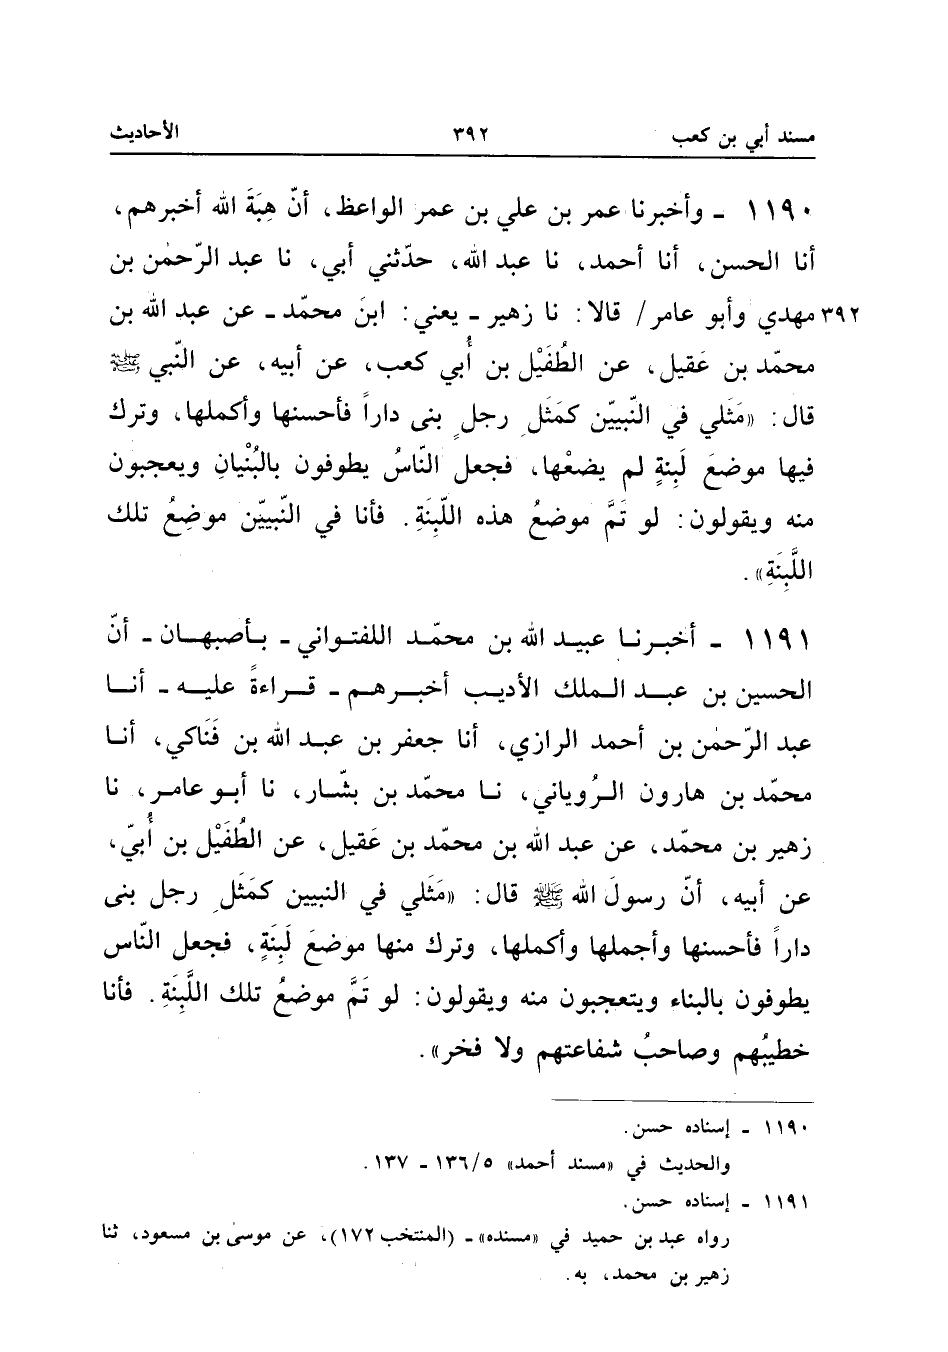 مسند أبي بن كعب ٣٩٢ الأحاديث
١١٩٠ ـ وأخبرنا عمر بن علي بن عمر الواعظ، أنّ هِبَةَ الله أخبرهم،
أنا الحسن، أنا أحمد، نا عبد الله، حدّثني أبي، نا عبد الرّحمٰن بن
٣٩٢ مهدي وأبو عامر/ قالا: نا زهير ـ يعني: ابنَ محمّد ـ عن عبد الله بن
محمّد بن عَقيل، عن الطُفَيْل بن أُبي كعب، عن أبيه، عن النّبي ﷺ
قال: «مَثَلي في النّبيّن كمَثَلِ رجلٍ بنى داراً فأحسنها وأكملها، وترك
فيها موضعَ لَبِنةٍ لم يضعْها، فجعل النّاسُ يطوفون بالبُنْيانِ ويعجبون
منه ويقولون: لو تَمَّ موضعُ هذه اللّبِنَةِ. فأنا في النّبييّن موضِعُ تلك
اللَّبِنَةِ».
١١٩١ ـ أخبرنا عبيد الله بن محمّد اللفتواني ـ بأصبهان ـ أنّ
الحسين بن عبد الملك الأديب أخبرهم ـ قراءةً عليه ـ أنا
عبد الرّحمٰن بن أحمد الرازي، أنا جعفر بن عبد الله بن فَنَاكي، أنا
محمّد بن هارون الرُوياني، نا محمّد بن بشّار، نا أبو عامر، نا
زهير بن محمّد، عن عبد الله بن محمّد بن عَقيل، عن الطُفَيْل بن أُبيّ،
عن أبيه، أنّ رسولَ الله ﷺ قال: «مَثَلي في النبيين كمَثَلِ رجل بنى
داراً فأحسنها وأجملها وأكملها، وترك منها موضعَ لَبِنَةٍ، فجعل النّاس
يطوفون بالبناء ويتعجبون منه ويقولون: لو تَمَّ موضعُ تلك اللَّبِنَةِ. فأنا
خطيبُهم وصاحبُ شفاعتهم ولا فخر».
١١٩٠ ـ إسناده حسن.
والحديث في «مسند أحمد» ٥/١٣٦ ـ ١٣٧.
١١٩١ ـ إسناده حسن.
رواه عبد بن حميد في «مسنده» ـ (المنتخب ١٧٢)، عن موسىٰ بن مسعود، ثنا
زهير بن محمد، به.